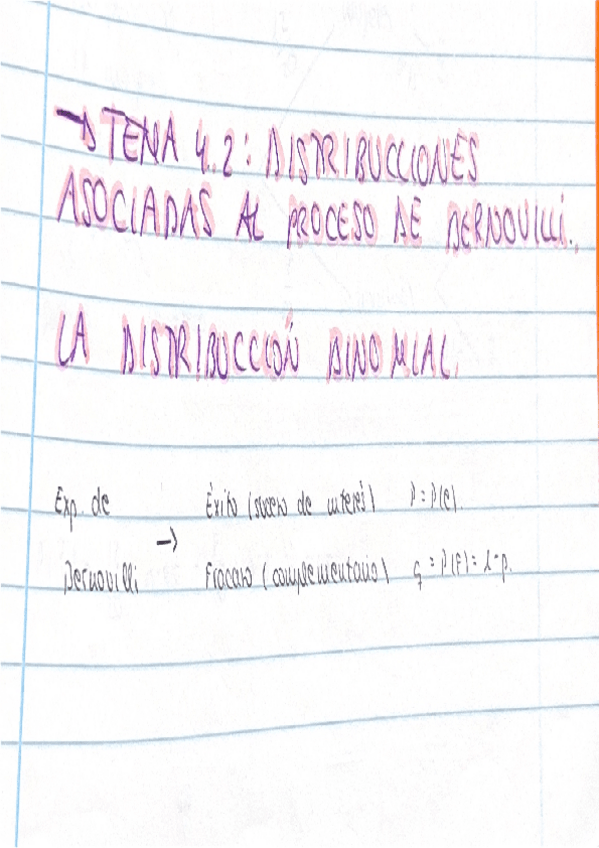 → TEMA 4.2: DISTRIBUCCIONES
ASOCIADAS AL PROCESO DE BERNOUILLI.
LA DISTRIBUCCIÓN BINOMIAL.
Exp. de Éxito (suceso de interés) p = P(E).
→
Bernouilli Fracaso (complementario) q = P(F) = 1-p.